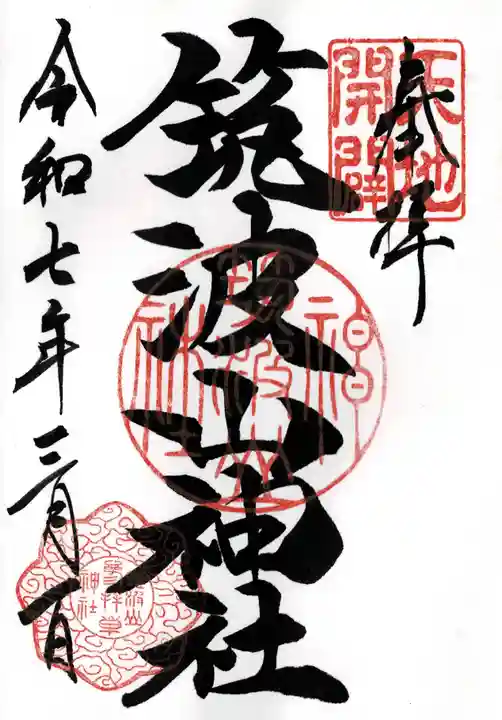 奉拝
天地
開闢
筑波山神社
筑波山
神社
令和七年三月一日
筑波山
神社